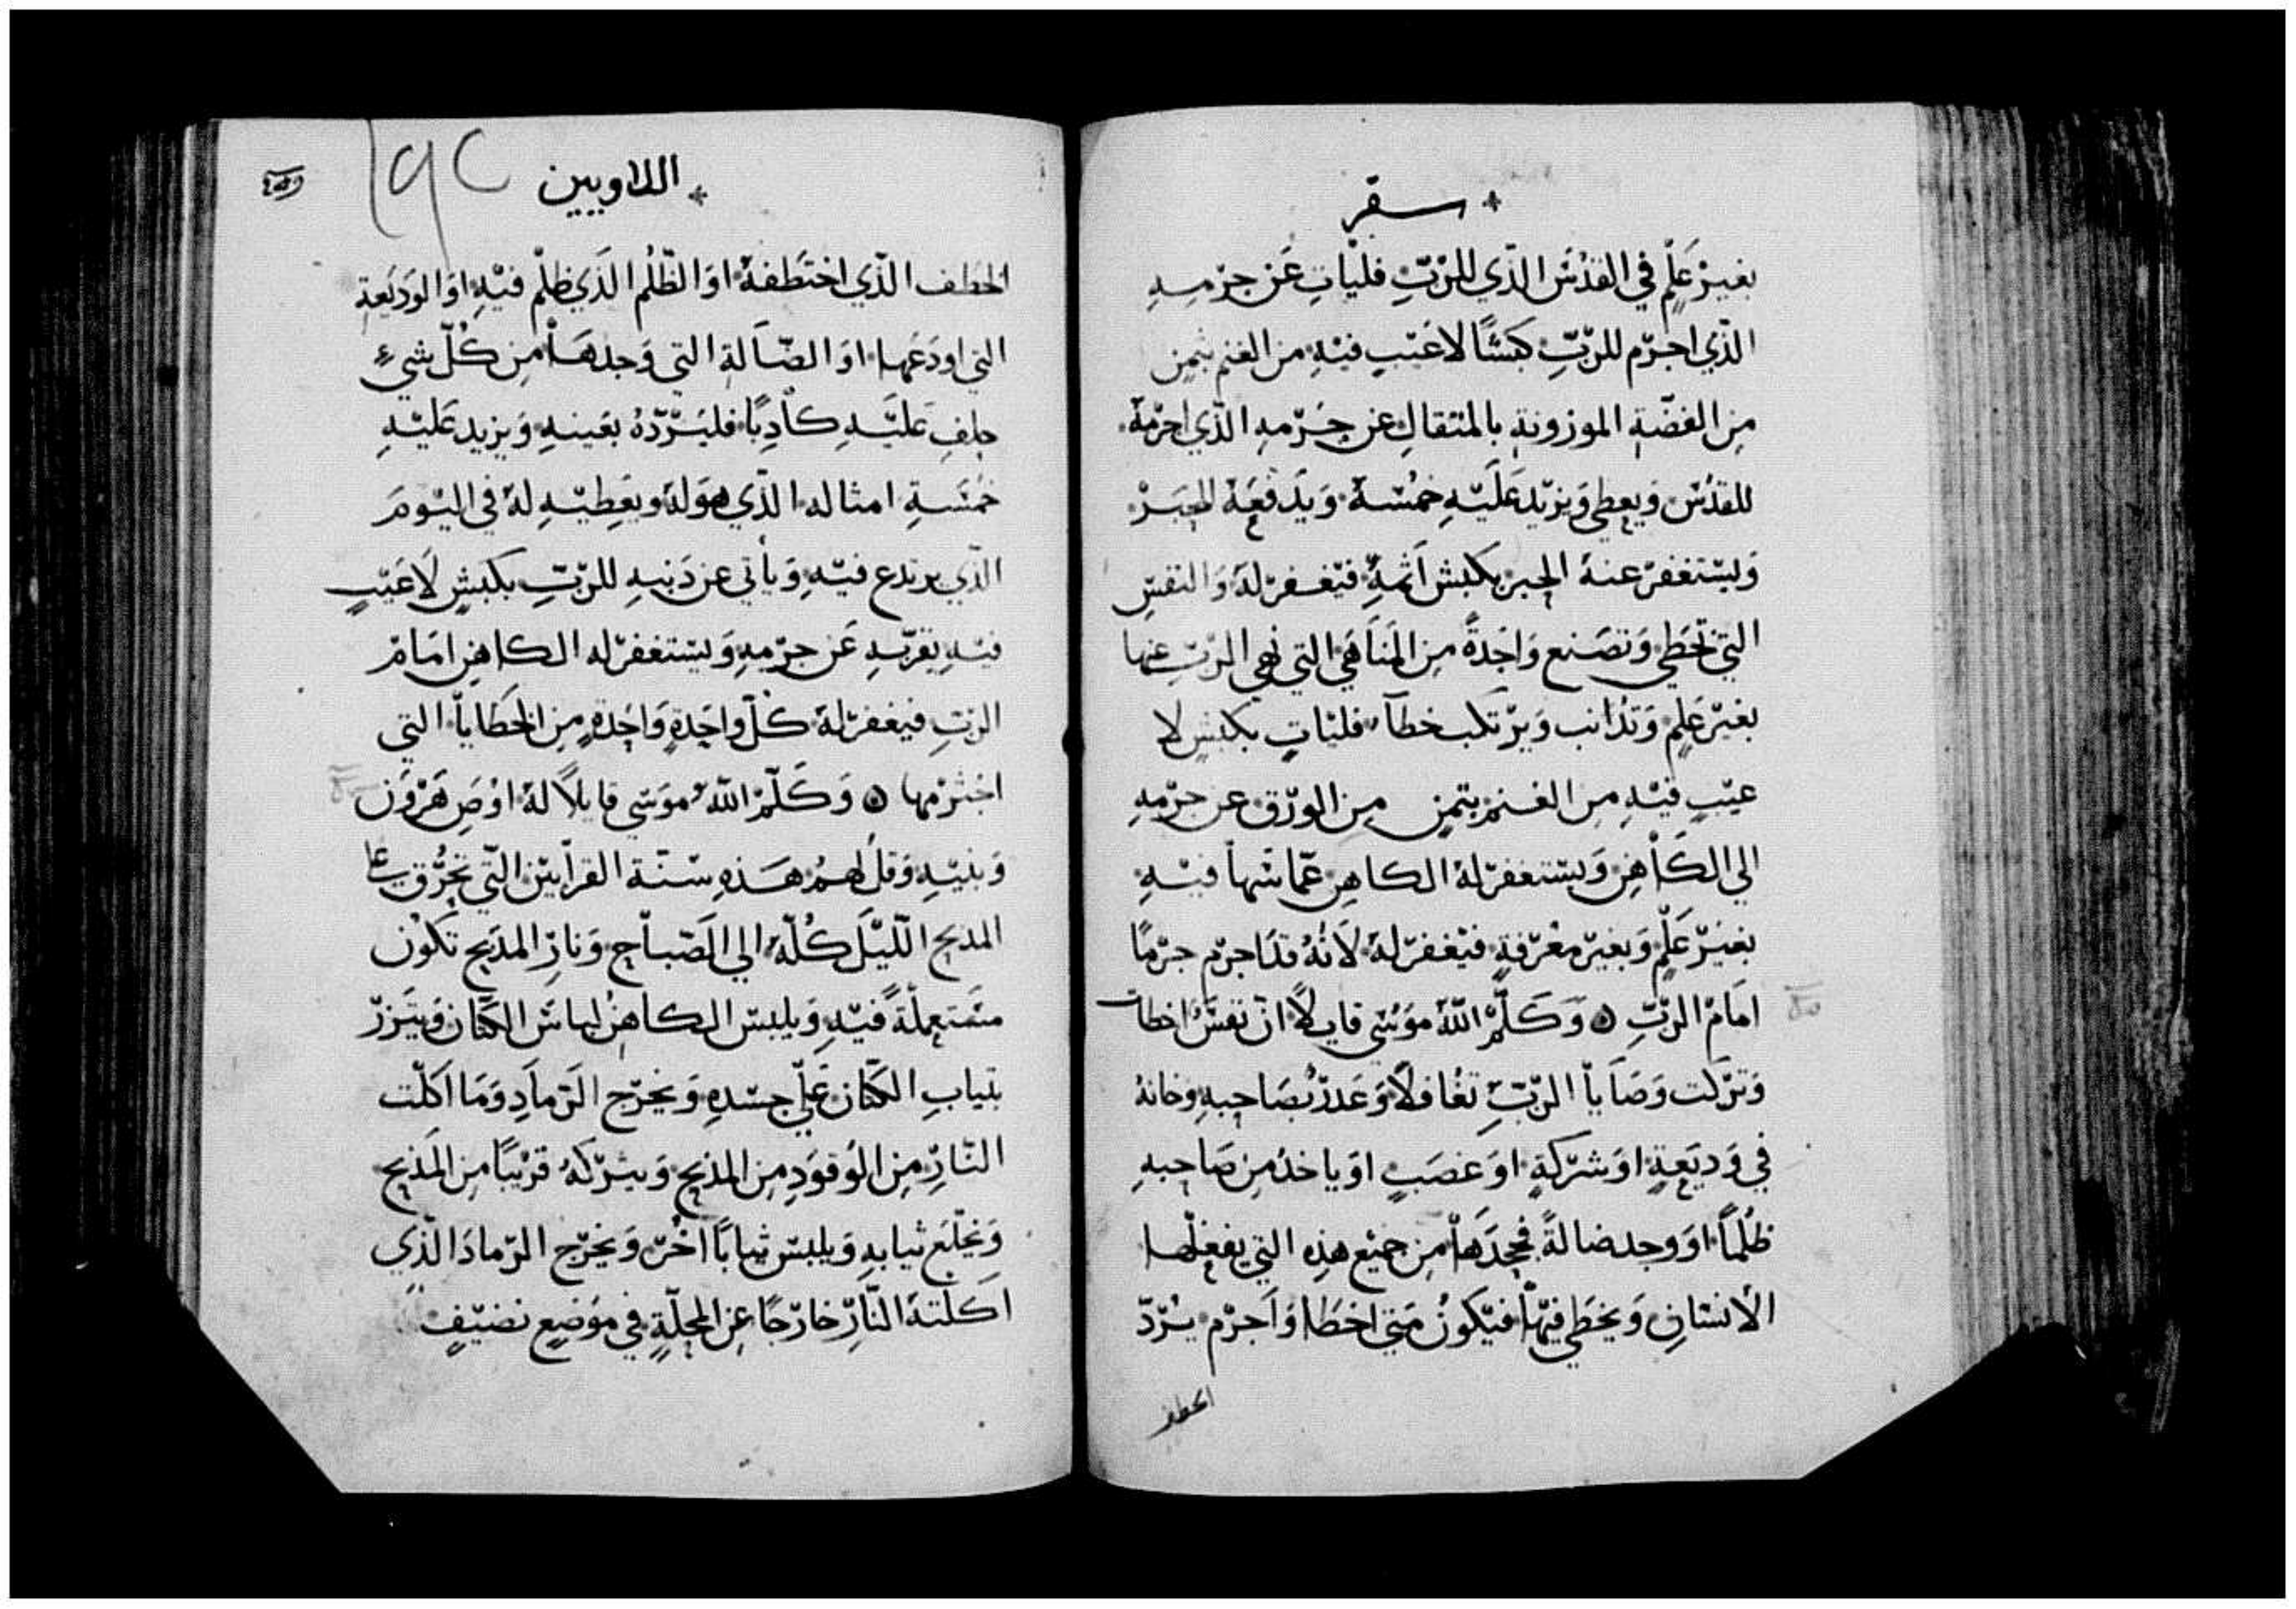 سفر
بغيرْ عَلمٍ في القدْسَ الذّي للرّبّ فليْاتِ عَن جرْمهِ
الذّي اجرّم للرّبّ كبشًا لا عَيْبٍ فيْهِ من الغنم بثمنٍ
مِن الفضّةِ الموزونةِ بالمثقالِ عن جرْمهِ الذّي اجرْمهُ
للقدْسْ ويعطي وَيزيْد عَليْهِ خمُسهُ وَيَدفعَهُ للحبَرْ
وَيسْتغفرْ عنهُ الحبر بكبش اثمهِ فيْغفرْ لهُ وَالنفسِ
التي تخطي وَتصَنع وَاحَدةً مِن المنَاهَي التي نهي الرّبّ عنها
بغيْرْ عَلمٍ وَتذانب وَيرْتكب خطآ فليْاتِ بكبشٍ لا
عيْبٍ فيْهِ مِن الغنمْ بثمنٍ مِن الورْق عن جرْمهِ
الي الكَاهنِ وَيسْتغفرْ لهُ الكاهن عمّا سَها فيْهِ
بغيْرْ عَلمٍ وَبغيرْ معْرفةٍ فيْغفرْ لهُ لانهُ قدَ اجرْم جرْمًا
امَامْ الرّبّ ۞ وَكَلّمْ اللّهُ موَسْي قايلاً ان نفسْ اخطات
وَترْكت وَصَايا الرّبّ تغُافلاً وَغدرْ بصَاحبهِ وخانهُ
في وَديَعةٍ اوَ شرْكةٍ اوَ غصَبٍ اوَ ياخذ مِن صَاحبهِ
ظلمًا اوَ وجد ضالةً فجحدَها مِن جميْع هذِه التي يفعلها
الانسْانِ وَيخطي فيْها فيْكونُ متي اخطَا وَاجرْم يرُدّ
الخطف
اللاويين
١٩٢
الخطف الذّي اختطفهُ اوَ الظلْم الذَي ظلْم فيْهِ اوَ الوَديَعةِ
التي اودَعَها اوَ الضّالةِ التي وَجدهَا مِن كُلّ شيءٍ
حلفِ عَليْهِ كاذبًا فليَرْدّهُ بعَينهِ وَيزيد عَليْهِ
خمُسَةِ امثاله الذّي هوَ لهُ ويعَطيْهِ لهُ في اليْوَمَ
الذّي يرتدع فيْهِ وَيأتي عن ذَنبهِ للرّبّ بكبشٍ لاَ عَيْبٍ
فيْهِ يقرّبهِ عَن جرْمهِ وَيسْتغفرْ له الكاهنِ امَامْ
الربّ فيغفرْ لهُ كلّ وَاحدةٍ وَاحَدةٍ مِن الخطَايا التي
اجْترْمها ۞ وَكَلّمْ اللهُ موَسْي قايلاً لهُ اوْصِ هَرْوَن
وَبنيْهِ وَقلْ لهمْ هَذهِ سْنّة القرابيْن التّي تحرُّق علي
المذبح الليْل كُلّهُ الي الصّباحِ وَنارِ المذَبح تكوُن
مشتعلةً فيْهِ وَيلبسْ الكاهنُ لباسَ الكتان وَيتَزرْ
بثيابِ الكتان عَلي جسْدهِ وَيخرْج الرّمادِ وَمَا اكَلْت
النّارِ مِن الوُقوَدِ مِن المذبح وَيترْكهُ قرْيبًا مِن المَذبح
وَيخْلع ثيابهِ وَيلبسْ ثيابًا اخُرْ وَيخرْج الرّمادَ الذّي
اكلتهُ النّارِ خارْجًا عِن المحلةٍ في موَضعٍ نضيْفٍ